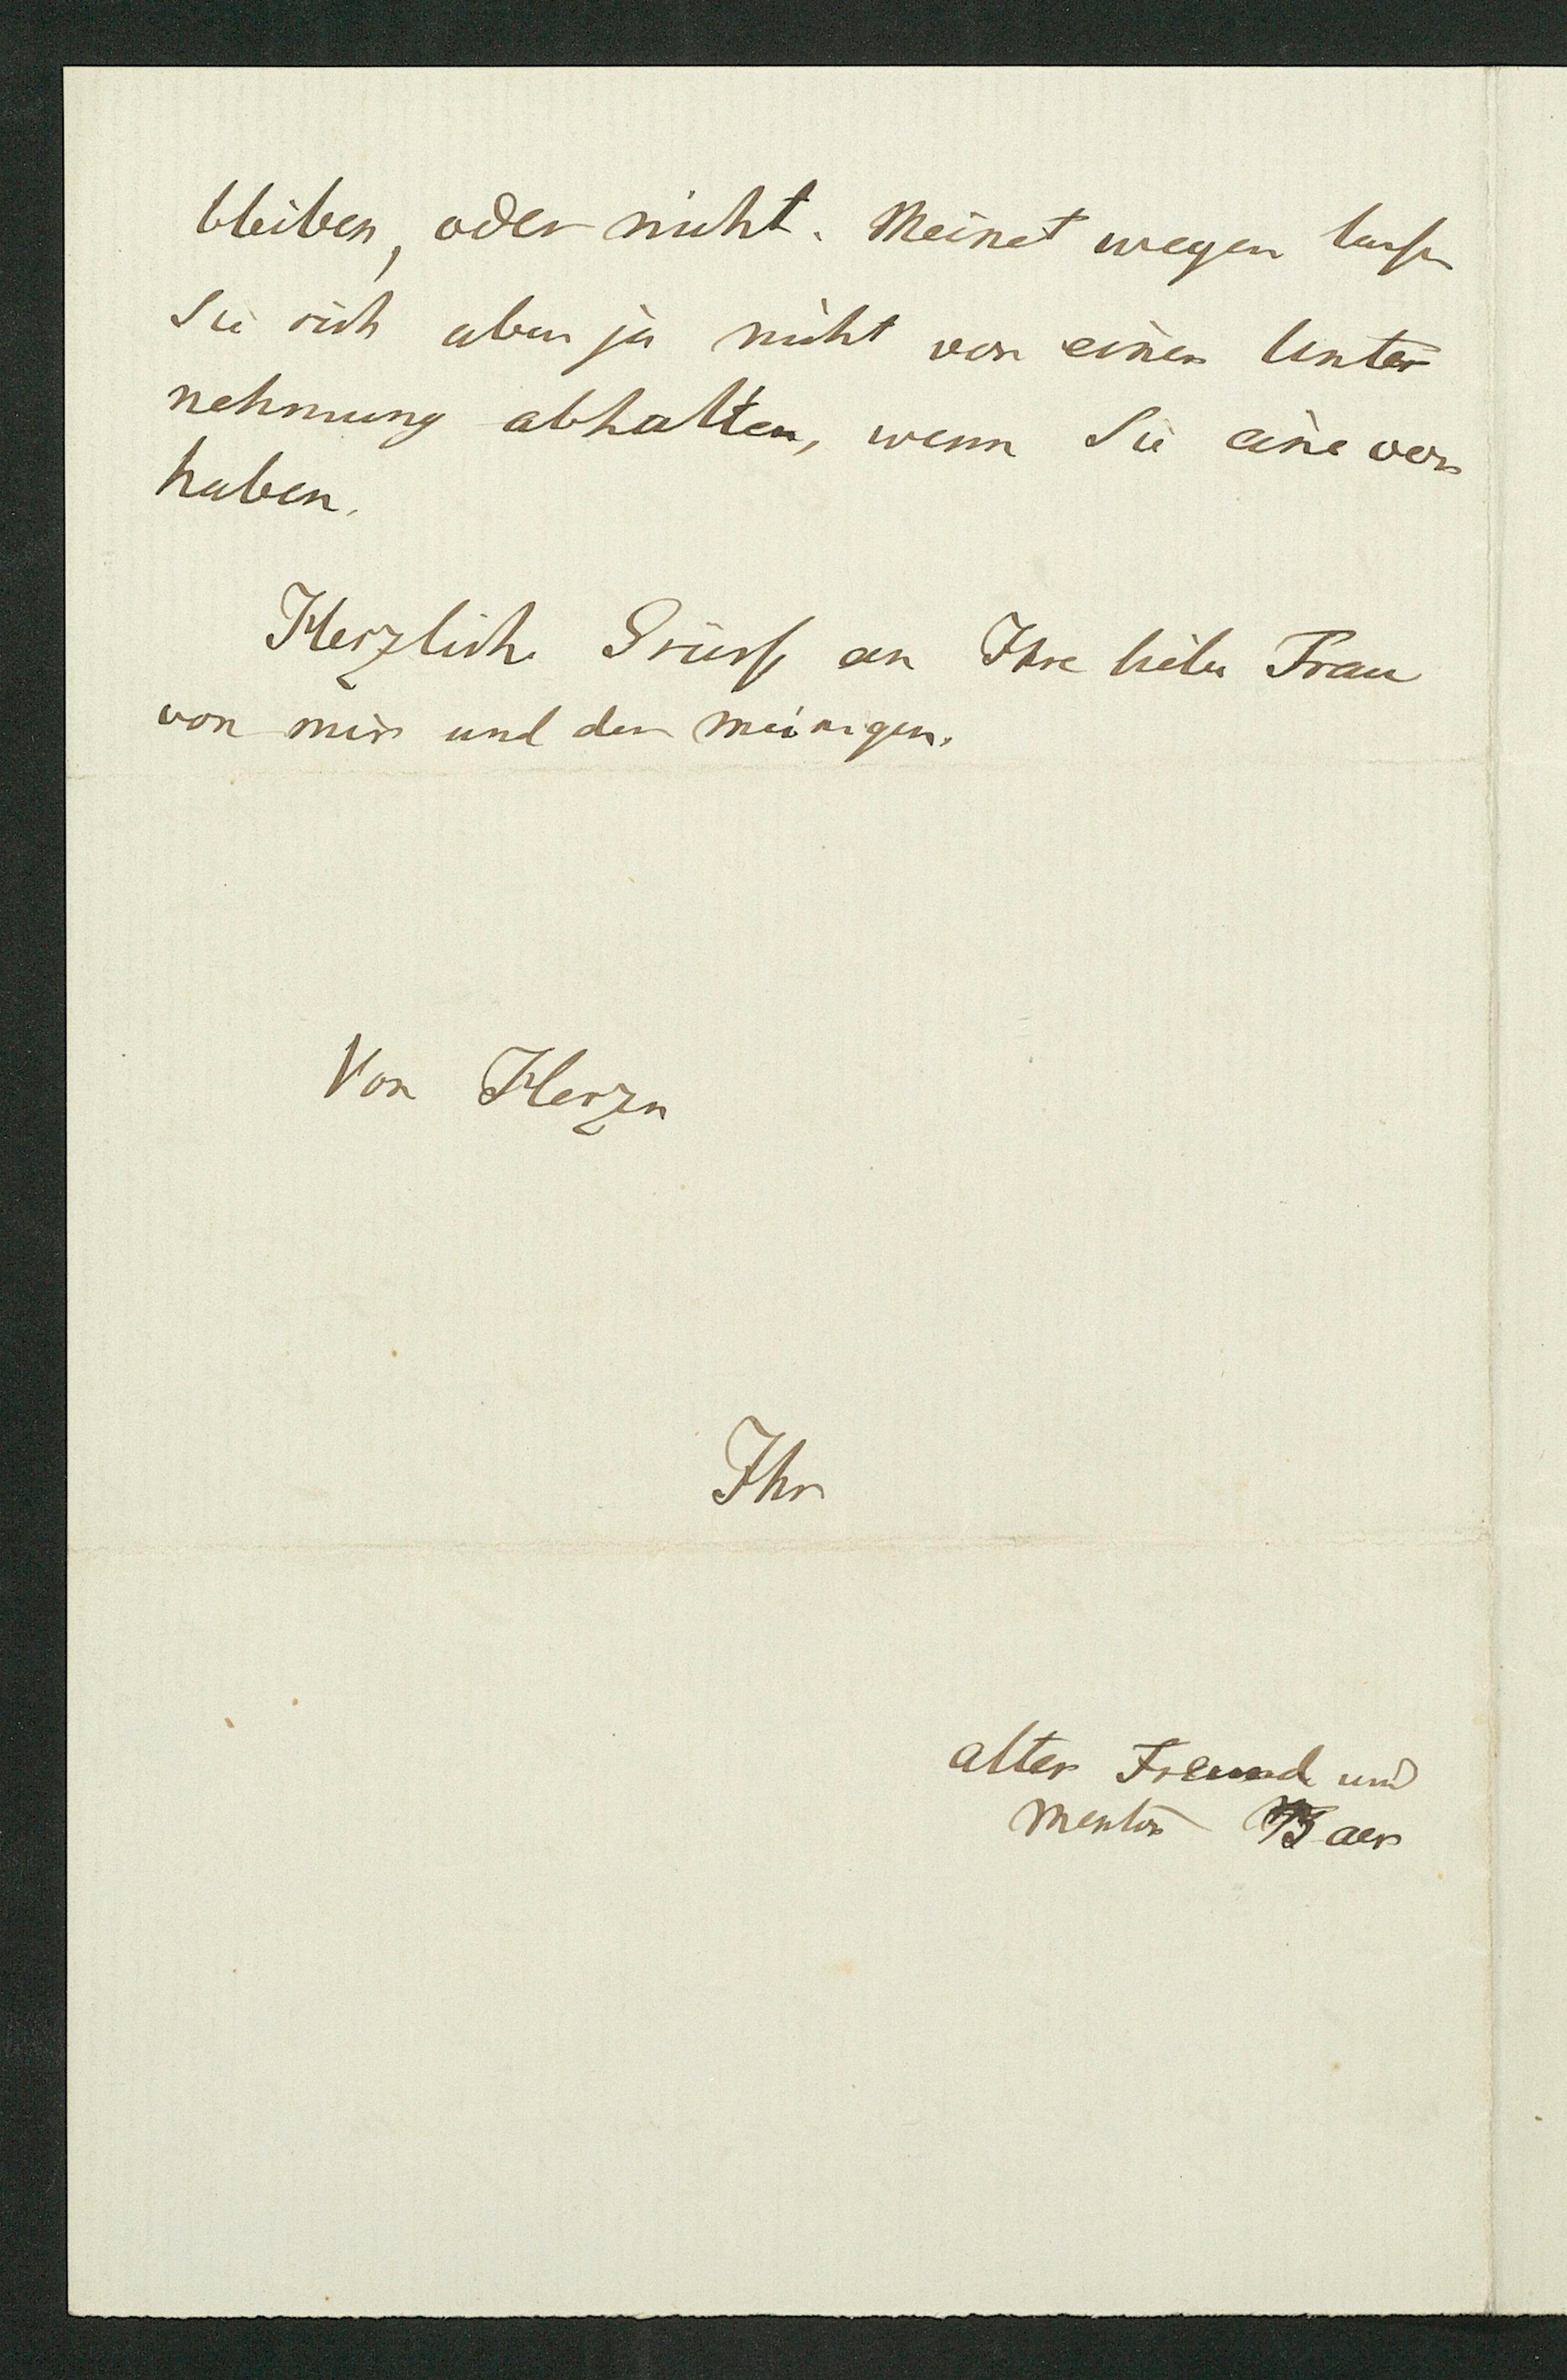 bleiben, oder nicht. Meinet wegen lassen
Sie sich aber ja nicht von einer Unter
nehmung abhalten, wenn Sie eine vor
haben.
Herzliche Grüsse an Ihre liebe Frau
von mir und den meinigen.
Von Herzen
Ihr
alter Freund und
Mentor Baer